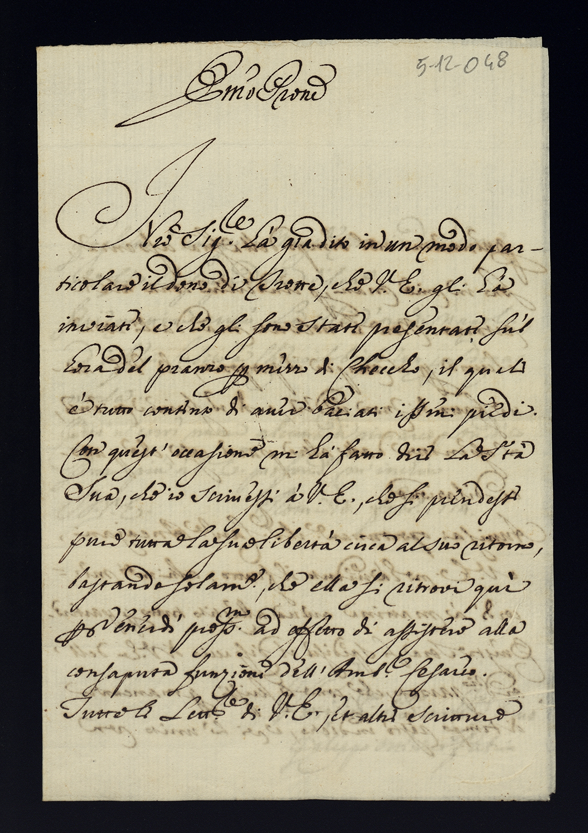 5-12-048
Emo Prone
Nro Sig.re hà gradito in un modo par-
ticolare il dono di Trotte, che V. E. gli hà
inviati, e che gli sono stati presentati sul
hora del pranzo p mezzo di Checcho, il quale
è tutto contento di aver baciati i SSmi piedi.
Con quest'occasione m hà fatto dire La Stà
Sua, che io scrivessi à V. E., che si prendesse
pure tutta la sua libertà circa al suo ritorno,
bastando solame, che ella si ritrovi quì
p Venerdì prossm. ad effetto di assistere alla
consaputa funzione dell' Amb.re Cesareo.
Tutte le Lett.re di V. E., et altre scritture